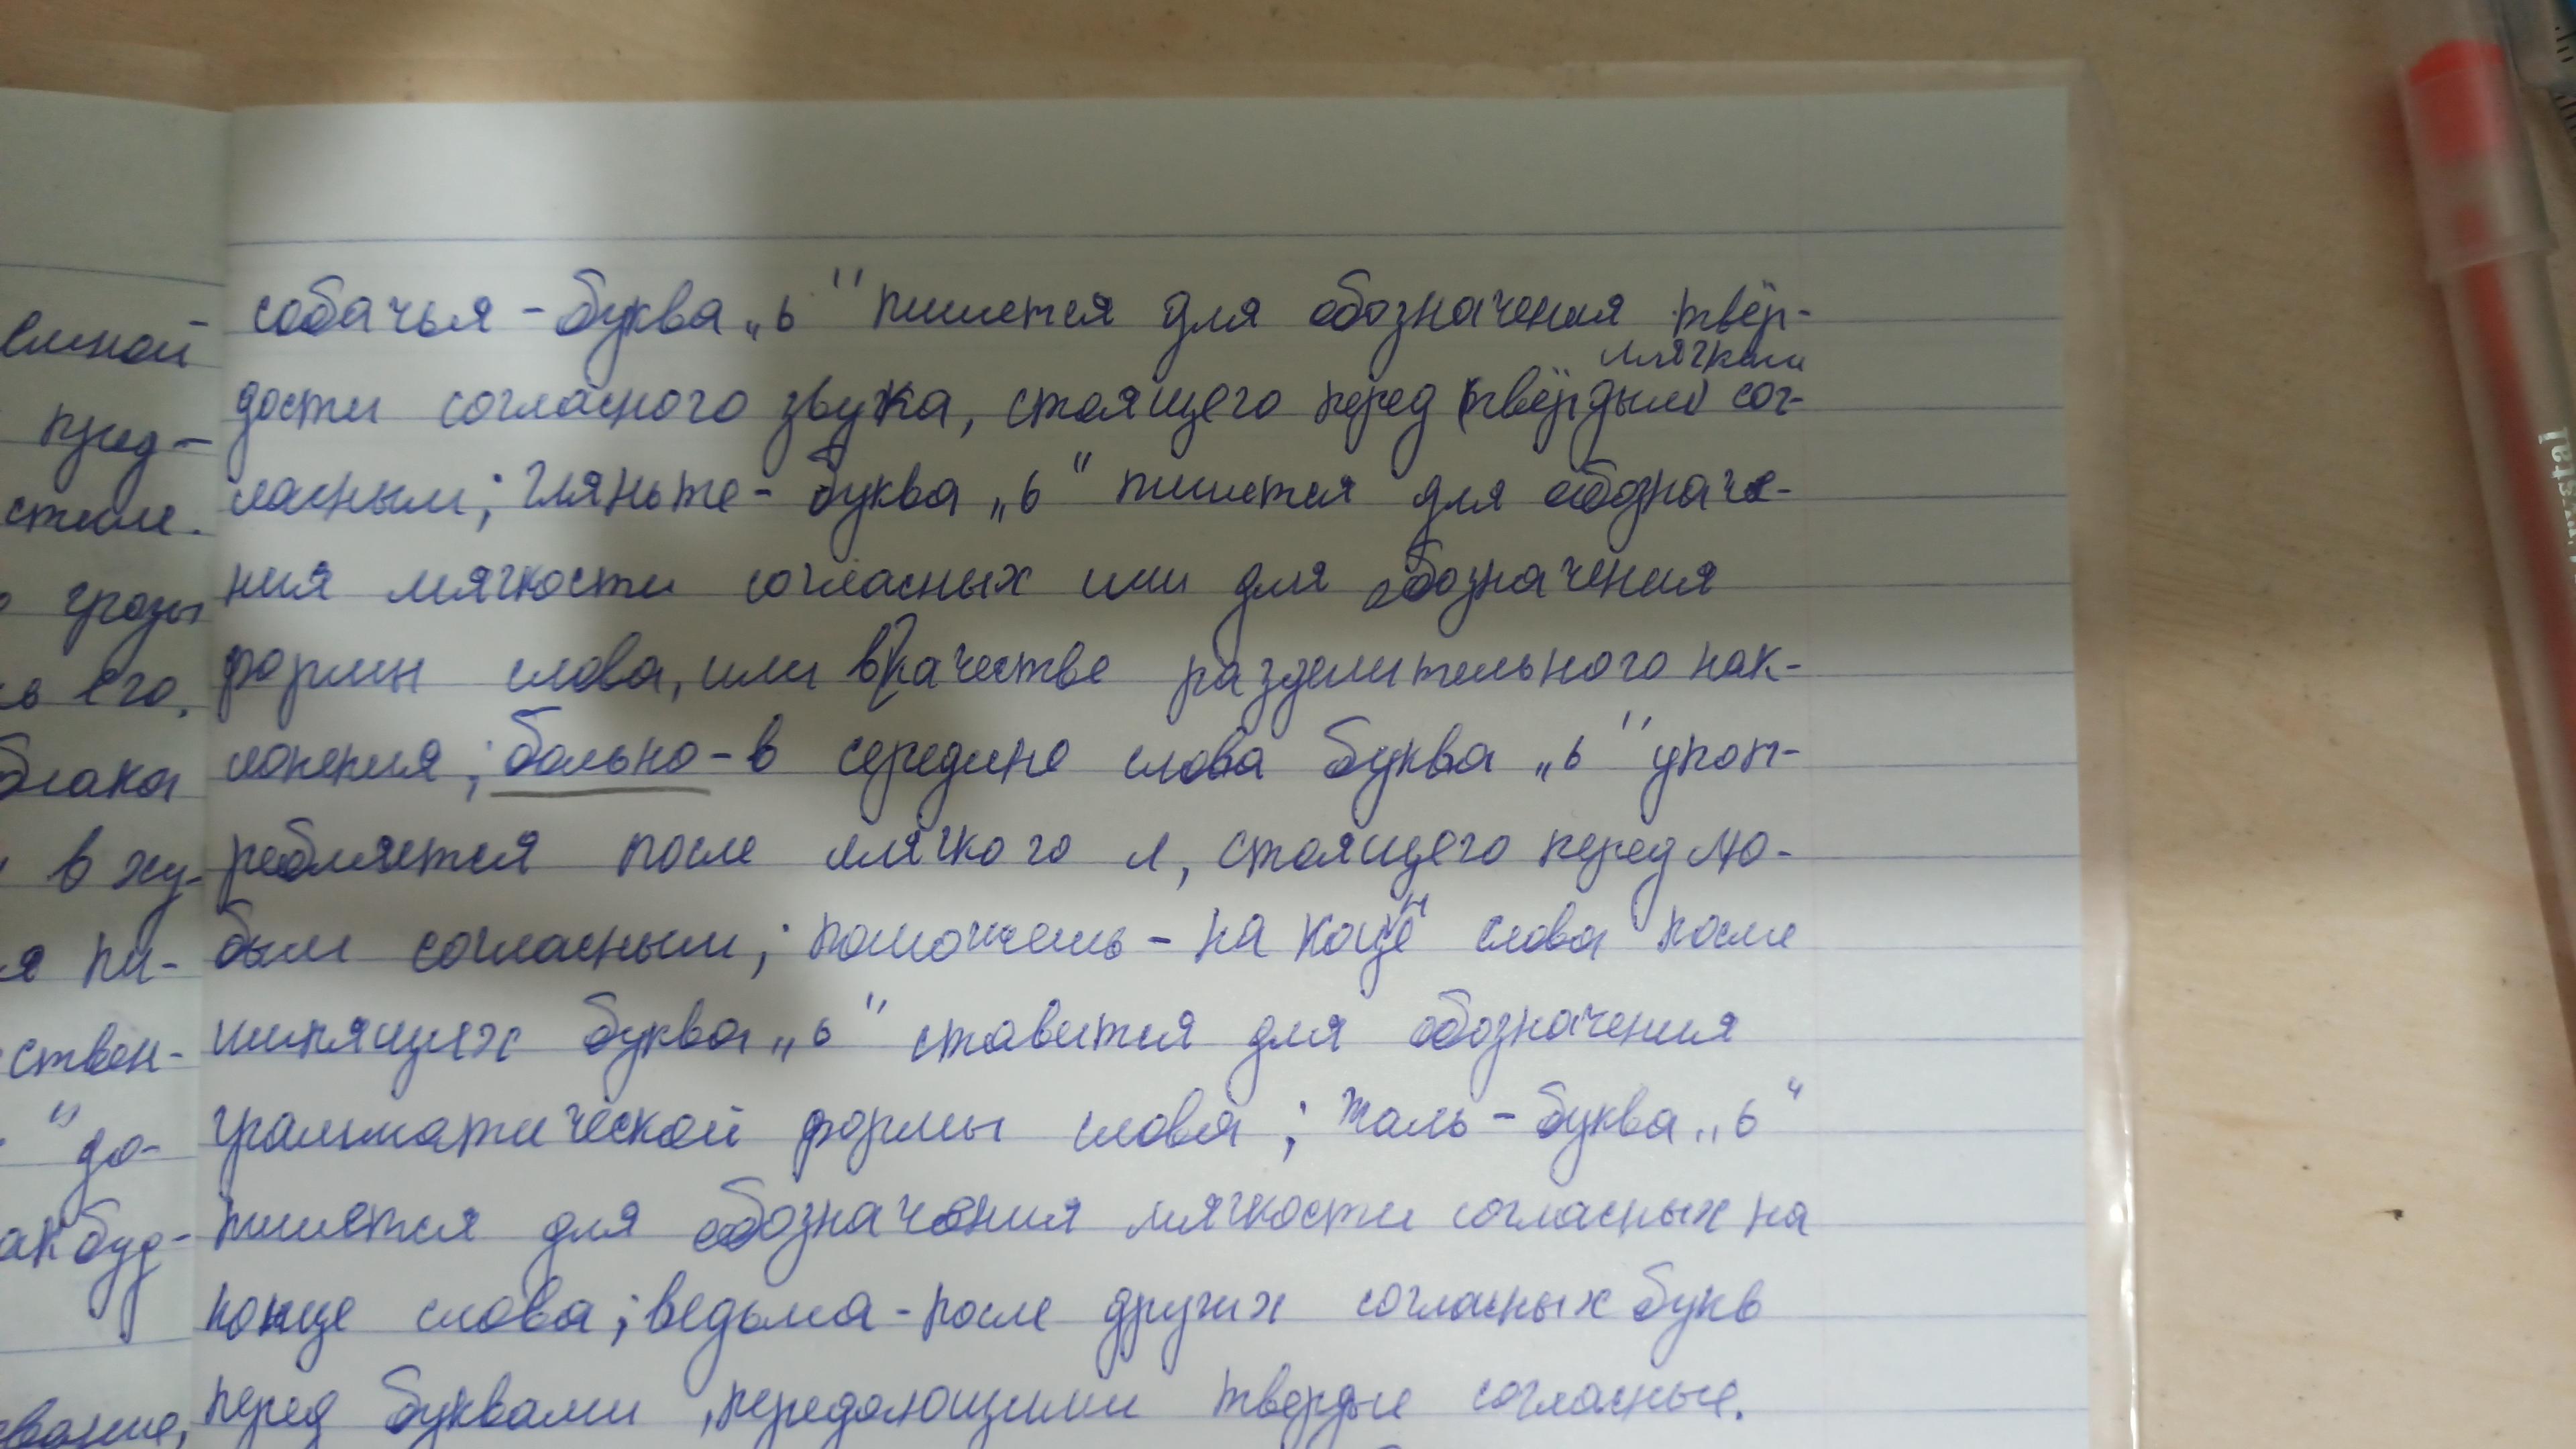 собачья - буква „ь" пишется для обозначения твёр-
мягким
дости согласного звука, стоящего перед (твёрдым) сог-
ласным; гляньте - буква „ь" пишется для обозначе-
ния мягкости согласных или для обозначения
формы слова, или в качестве разделительного нак-
лонения; больно - в середине слова буква „ь" упот-
ребляется после мягкого л, стоящего перед лю-
бым согласным; помочешь - на конце слова после
шипящих буква „ь" ставится для обозначения
грамматической формы слова; жаль - буква „ь"
пишется для обозначения мягкости согласных на
конце слова; ведьма - после других согласных букв
перед буквами, передающими твердые согласные.
елной
пред-
стиле.
грозы
его.
в жу-
я пи-
ствен-
" до-
ак буд-